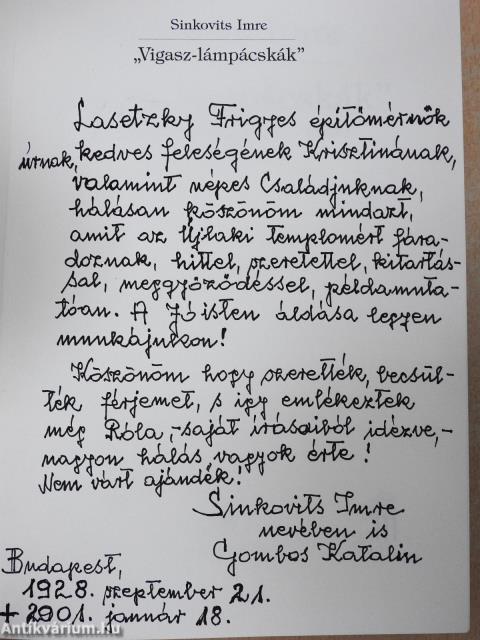 Sinkovits Imre
„Vigasz-lámpácskák”
Lasetzky Frigyes építőmérnök
úrnak, kedves feleségének Krisztinának,
valamint népes Családjuknak,
hálásan köszönöm mindazt,
amit az Újlaki templomért fára-
doznak, hittel, szeretettel, kitartás-
sal, meggyőződéssel, példamuta-
tóan. A Jó isten áldása legyen
munkájukon!
Köszönöm hogy szerették, becsül-
ték férjemet, s így emlékeztek
meg Róla, - saját írásaiból idézve, -
nagyon hálás vagyok érte!
Nem várt ajándék!
Sinkovits Imre
nevében is
Gombos Katalin
Budapest,
1928. szeptember 21.
+ 2001. január 18.
Antikvárium.hu